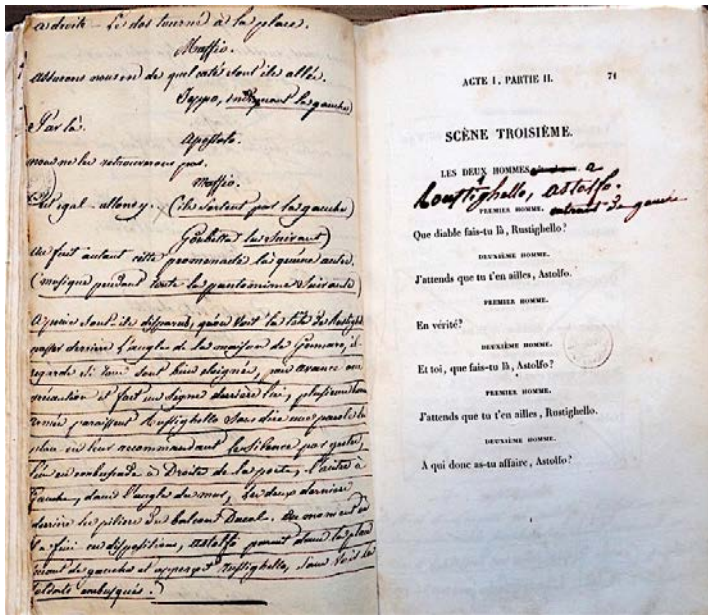 a droite – Le dos tourné à la place.
Maffio.
assurons nous en de quel coté sont ils allés.
Jeppo, indiquant la gauche)
Par là.
Apostolo.
nous ne les retrouverons pas.
Maffio.
C'est egal - allons y. (ils sortent par la gauche)
Gubetta les suivant)
au fait autant cette promenade là qu'une autre.
(musique pendant toute la pantomime suivante)
A peine sont ils disparus, qu'on voit la tête de Rustigh
passer derrière l'angle de la maison de Gennaro, il
regarde si tous sont bien éloignés, puis avance avec
précaution et fait un signe derrière lui, plusieurs hom
armés paraissent Rustighello sans dire une parole les
place en leur recommandant le silence par gestes,
l'un en embuscade à Droite de la porte, l'autre à
gauche, dans l'angle du mur, les deux derniers
derrière les piliers du balcon Ducal. Au moment où
il a fini ces dispositions, astolfo parait dans la place
venant de gauche et apperçoit Rustighello, sans voir les
soldats embusqués.)
ACTE I, PARTIE II. 71
SCÈNE TROISIÈME.
LES DEUX HOMMES 2
1
Roustighello, astolfo.
PREMIER HOMME. entrant de gauche
Que diable fais-tu là, Rustighello?
DEUXIÈME HOMME.
J'attends que tu t'en ailles, Astolfo.
PREMIER HOMME.
En vérité?
DEUXIÈME HOMME.
Et toi, que fais-tu là, Astolfo?
PREMIER HOMME.
J'attends que tu t'en ailles, Rustighello.
DEUXIÈME HOMME.
A qui donc as-tu affaire, Astolfo?